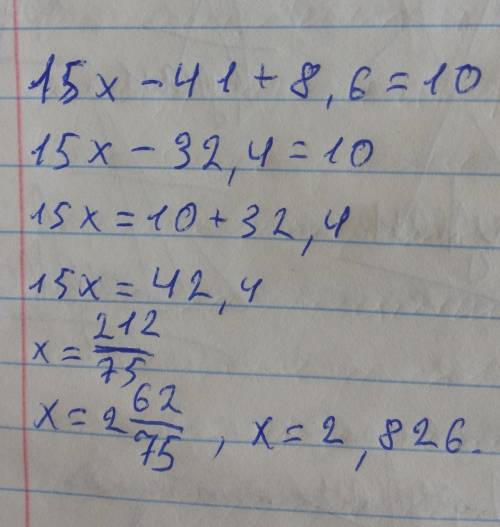 15x - 41 + 8,6 = 10
15x - 32,4 = 10
15x = 10 + 32,4
15x = 42,4
x = 212/75
x = 2 62/75 , x = 2,826.